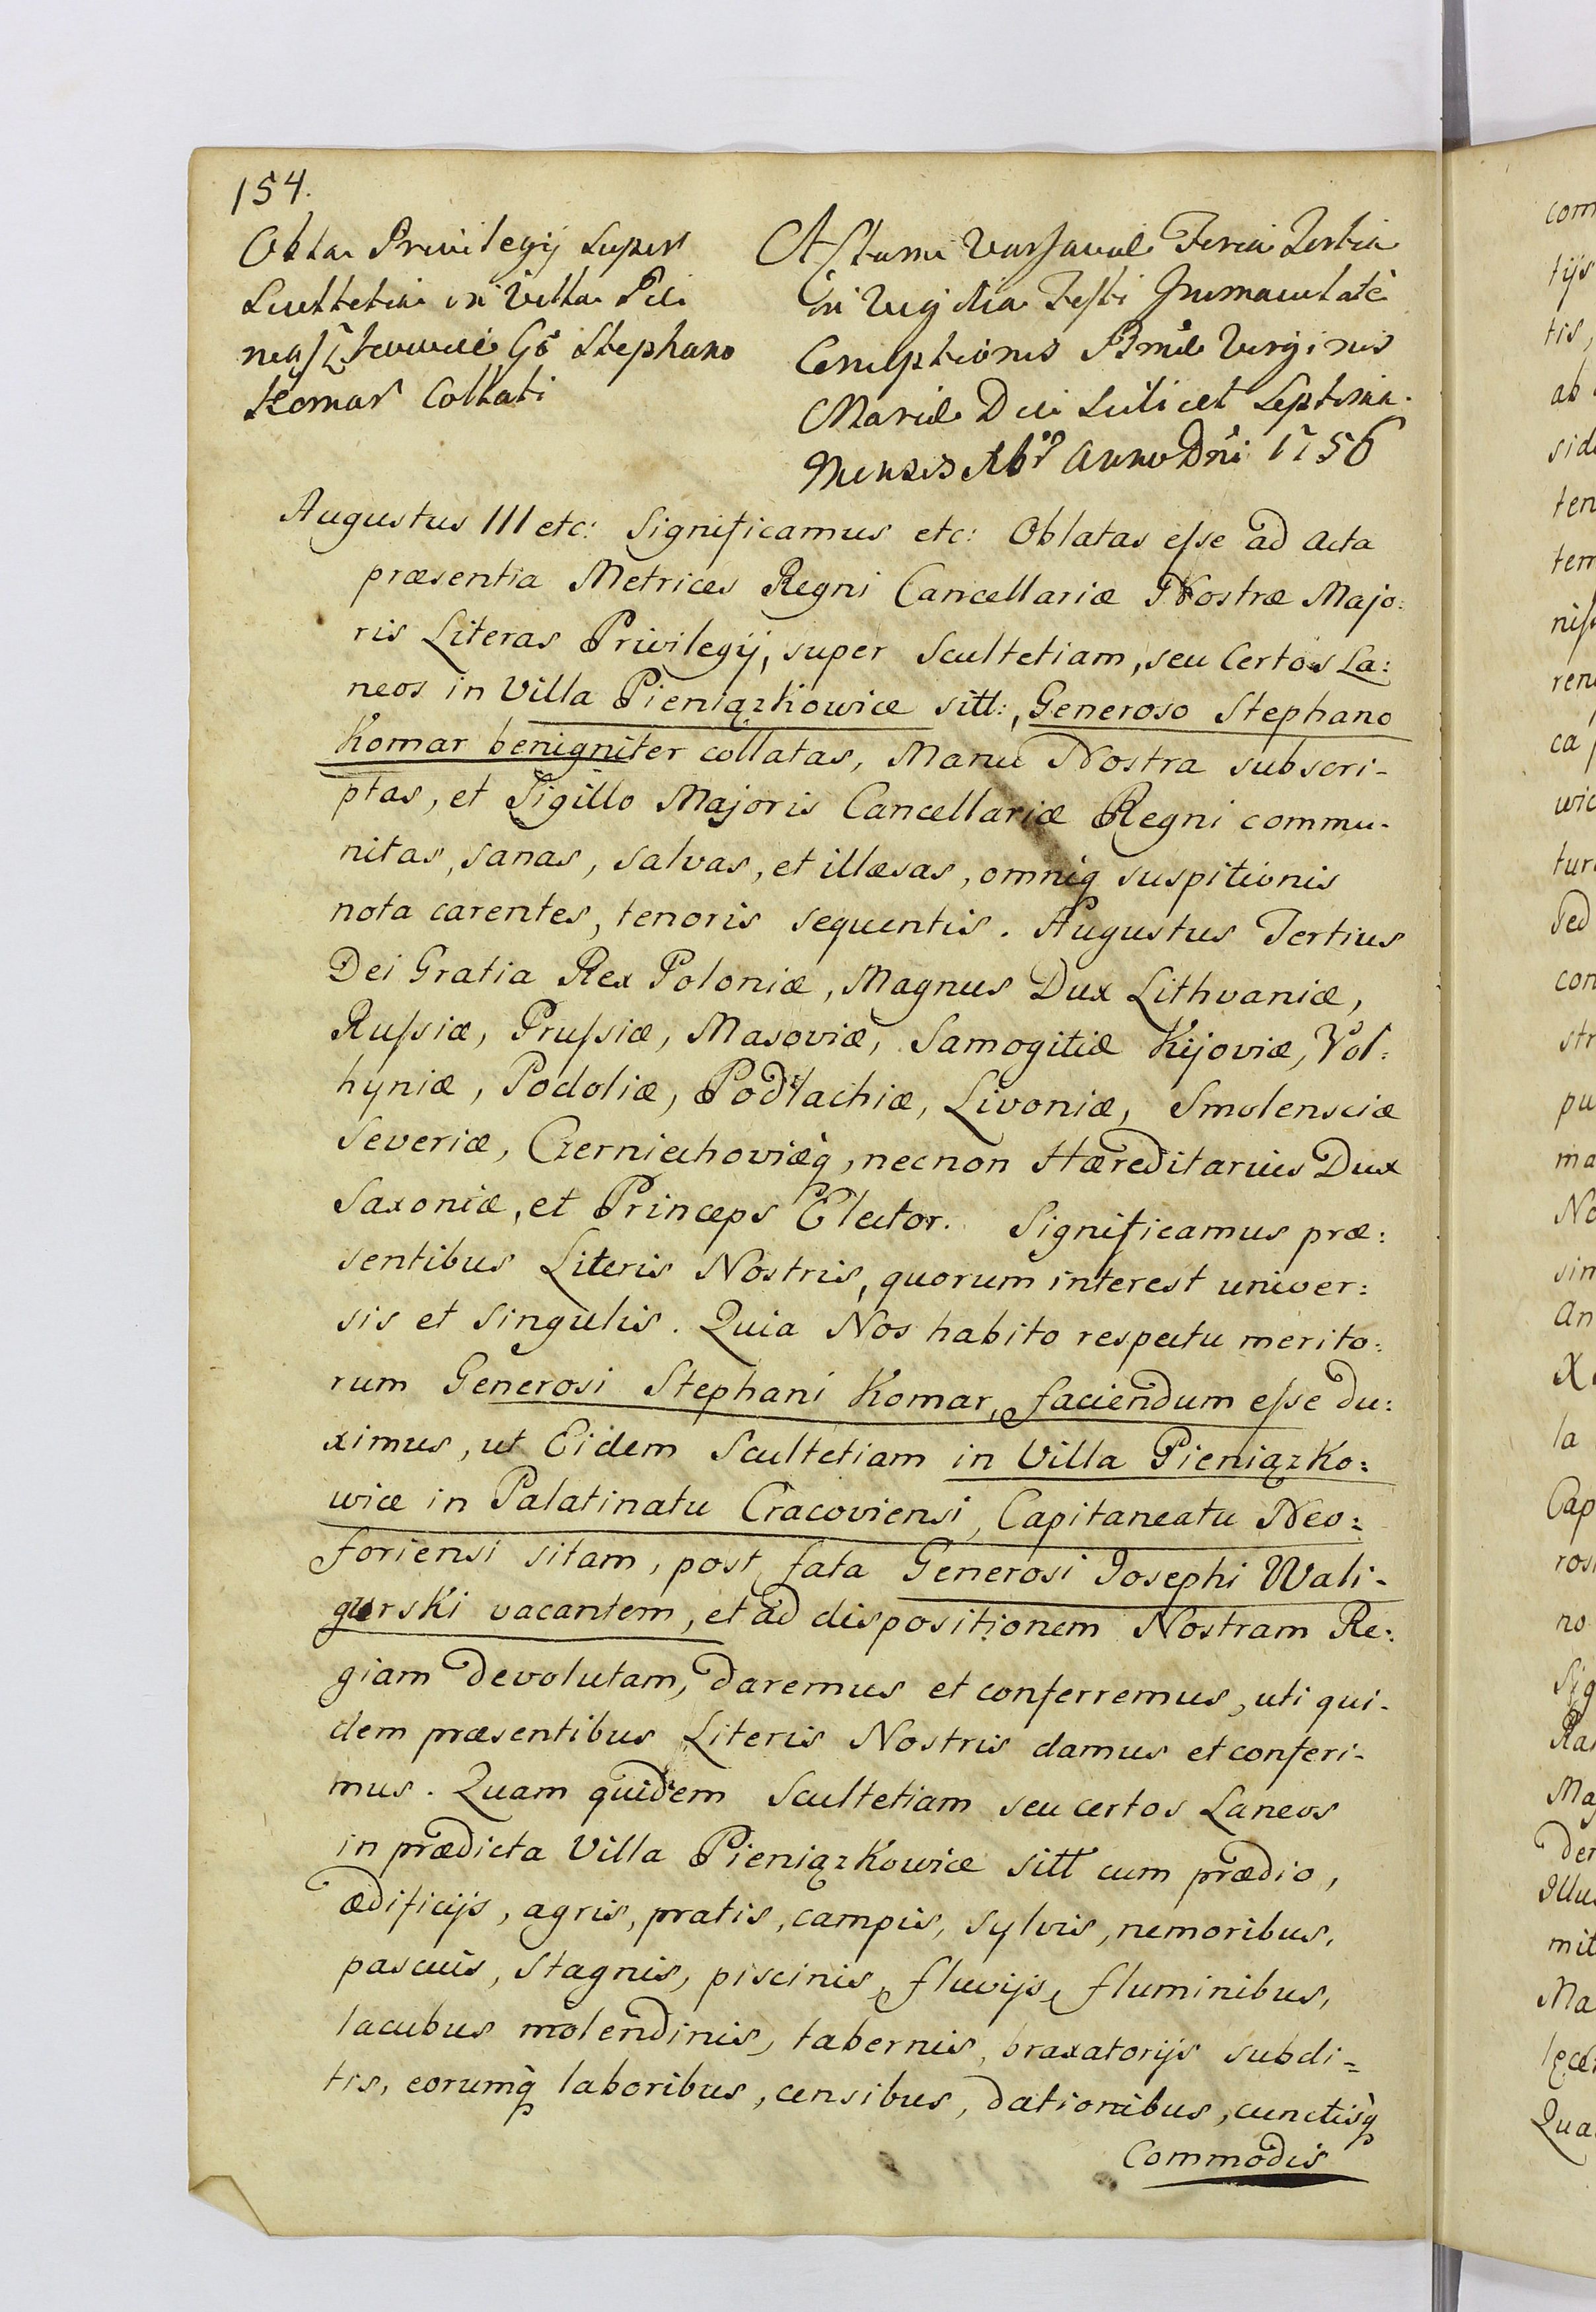 154.
Oblta Privilegij super
Scultetia in Villa Pie
niąszkowice Go Stephano
Komar Collati
Actum Varsaviæ Feria Tertia
in Vigilia Festi Immaculatè
Conceptionis Bmæ Virginis
Mariæ Die Scilicet Septima
Mensis Xbr Anno Dni 1756
Augustus III etc: Significamus etc: Oblatas eſse ad Acta
præsentia Metrices Regni Cancellariæ Nostræ Majo:
ris Literas Privilegij, super Scultetiam, seu Certos La:
neos in Villa Pieniązkowice sitt:, Generoso Stephano
Komar benigniter collatas, Manu Nostra subscri-
ptas, et Sigillo Majoris Cancellariæ Regni commu-
nitas, sanas, salvas, et illæsas, omniq suspitionis
nota carentes, tenoris sequentis. Augustus Tertius
Dei Gratia Rex Poloniæ, Magnus Dux Lithvaniæ,
Ruſsiæ, Pruſsiæ, Masoviæ, Samogitiæ Kijoviæ, Vol:
hyniæ, Podoliæ, Podlachiæ, Livoniæ, Smolensciæ
Severiæ, Czerniechoviæq, necnon Hæreditarius Dux
Saxoniæ, et Princeps Elector. Significamus præ:
sentibus Literis Nostris, quorum interest univer:
sis et singulis. Quia Nos habito respectu merito:
rum Generosi Stephani Komar, faciendum eſse du:
ximus, ut Eidem Scultetiam in Villa Pieniązko:
wice in Palatinatu Cracoviensi, Capitaneatu Neo:
foriensi sitam, post fata Generosi Josephi Wali-
gurski vacantem, et ad dispositionem Nostram Re:
giam devolutam, daremus et conferremus, uti qui-
dem præsentibus Literis Nostris damus et conferi-
mus. Quam quidem Scultetiam seu certos Laneos
in prædicta Villa Pieniązkowice sitt cum prædio,
ædificijs, agris, pratis, campis, sylvis, nemoribus,
pascuis, stagnis, piscinis, fluvijs, fluminibus,
lacubus molendinis, tabernis, braxatorijs subdi=
tis, eorumq laboribus, censibus, dationibus, cunctisq
Commodis